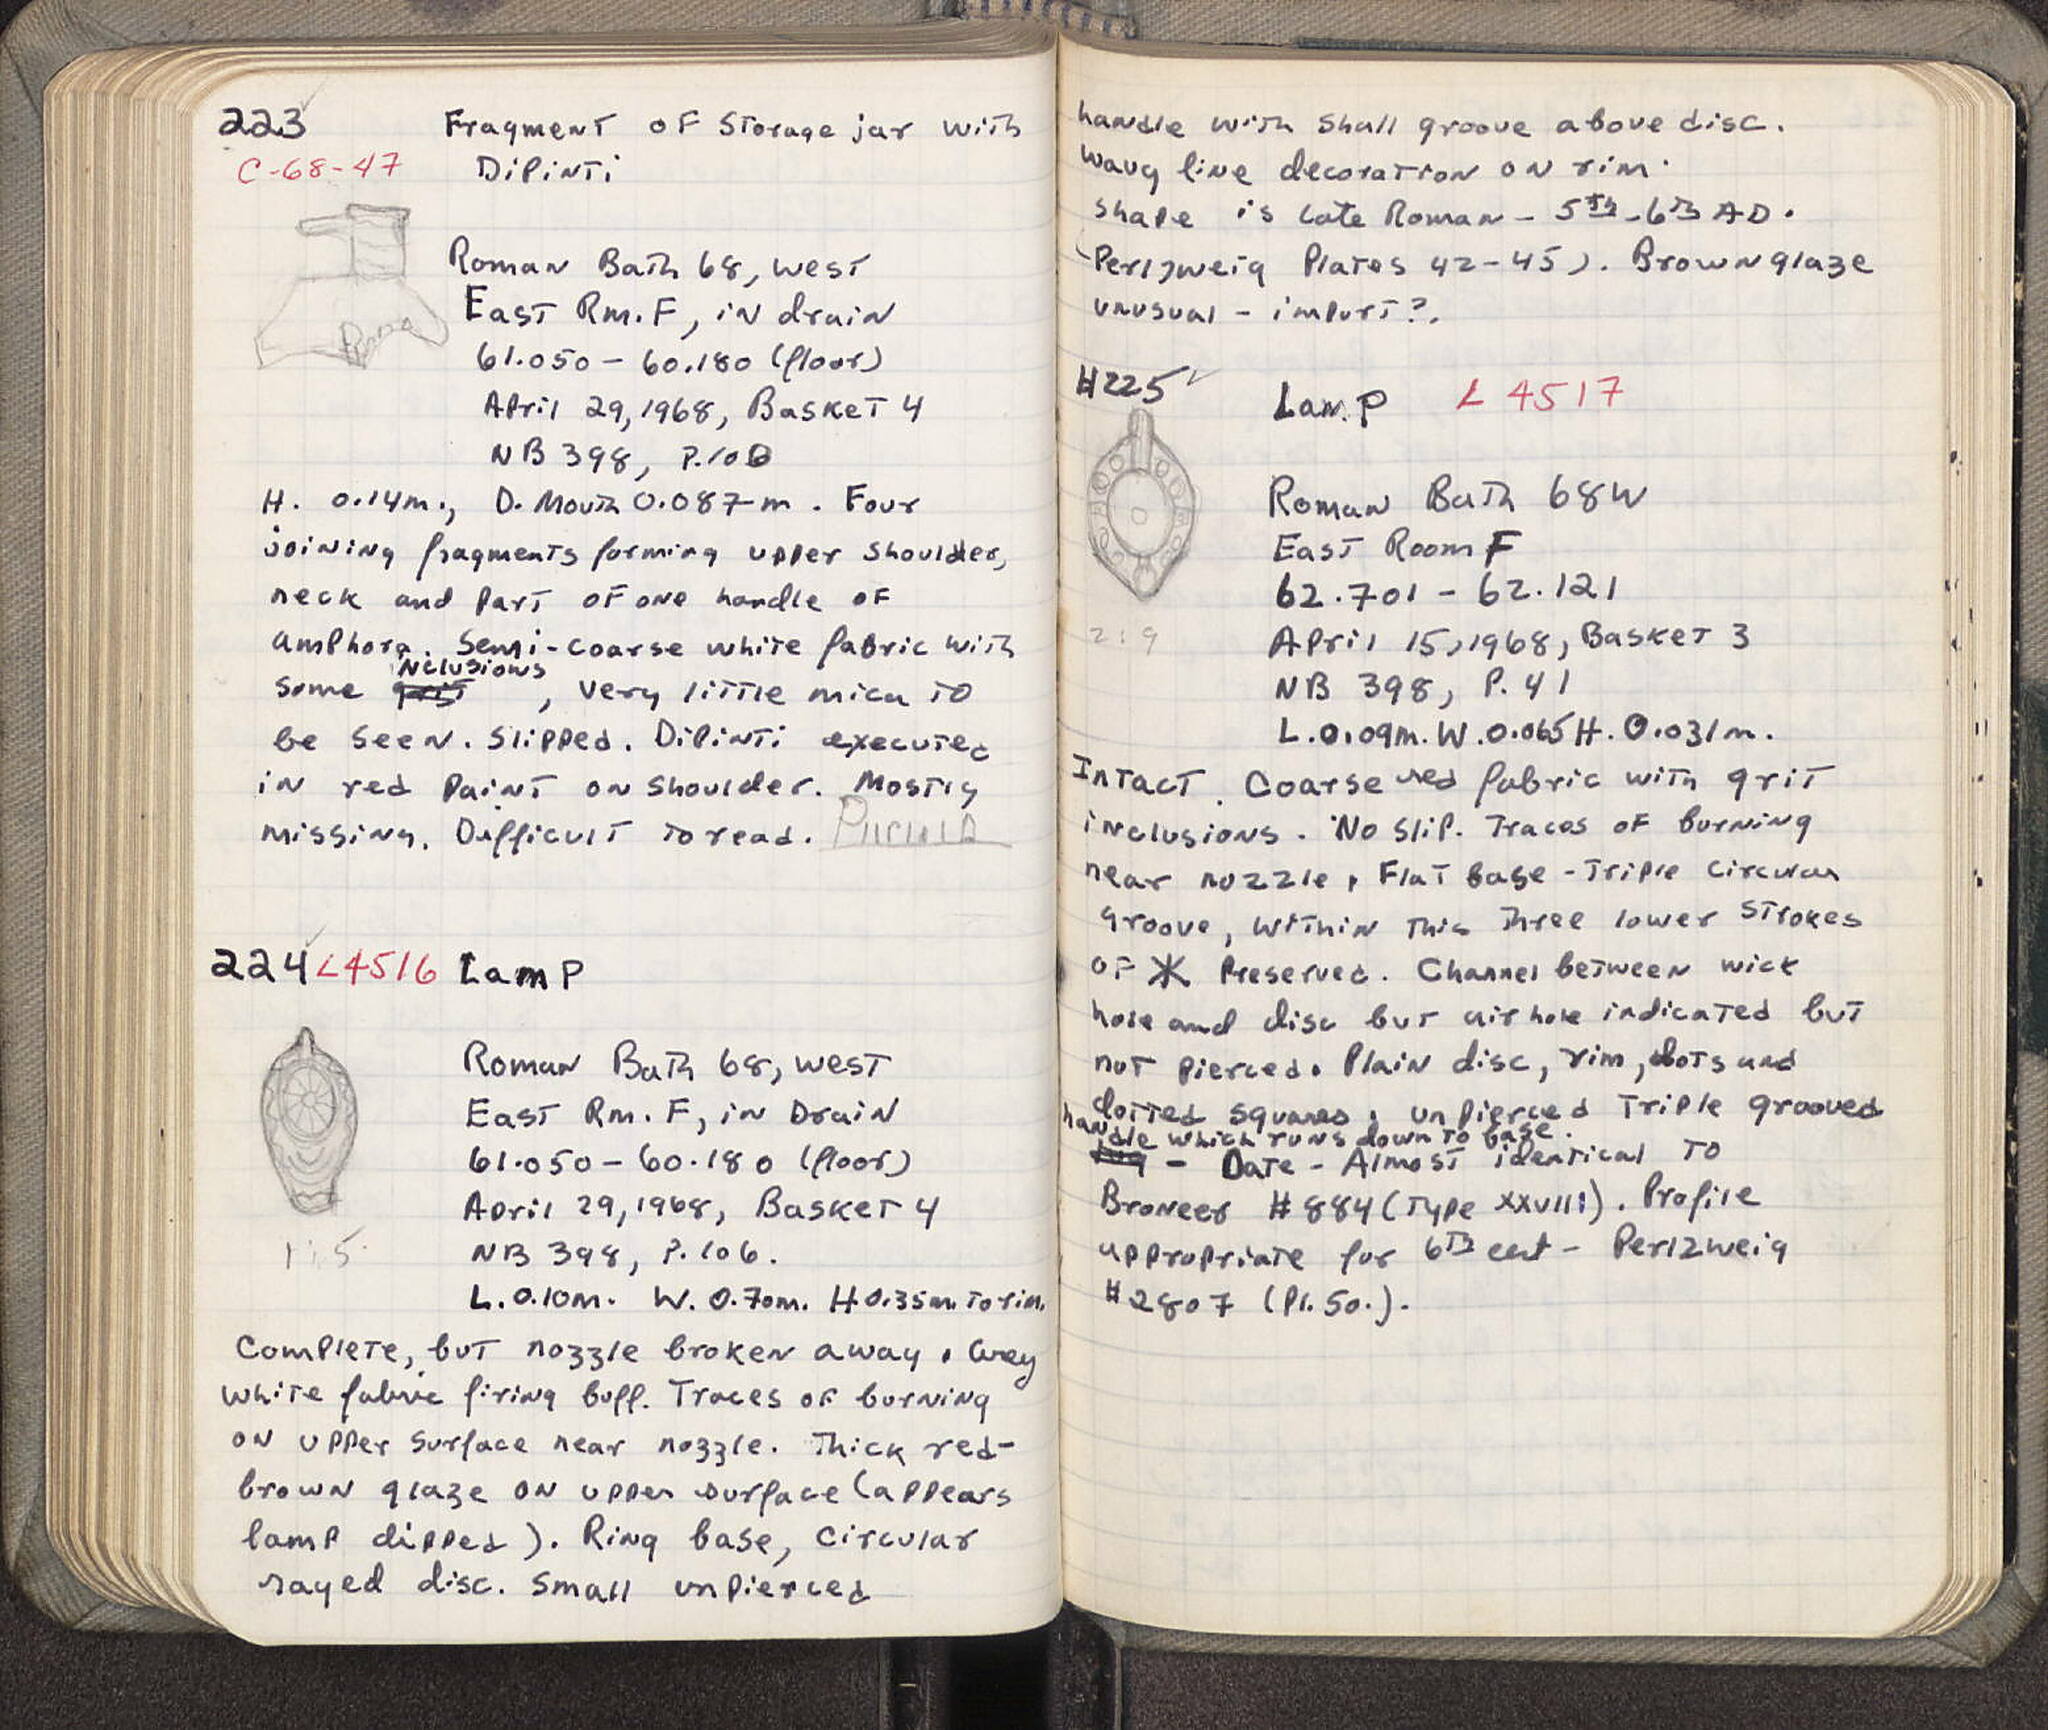 223
Fragment of Storage jar with
C-68-47
Dipinti
Roman Bath 68, West
East Rm. F, in drain
61.050 - 60.180 (floor)
April 29, 1968, Basket 4
NB 398, P. 106
H. 0.14m., D. Mouth 0.087m. Four
joining fragments forming upper shoulder,
neck and part of one handle of
amphora. Semi-coarse white fabric with
inclusions
some grit, very little mica to
be seen. Slipped. Dipinti executed
in red paint on shoulder. Mostly
missing. Difficult to read.
224 L4516 Lamp
Roman Bath 68, West
East Rm. F, in Drain
61.050 - 60.180 (floor)
April 29, 1968, Basket 4
NB 398, P. 106.
1:5
L. 0.10m. W. 0.70m. H 0.35m. to rim.
Complete, but nozzle broken away. Grey
white fabric firing buff. Traces of burning
on upper surface near nozzle. Thick red-
brown glaze on upper surface (appears
lamp dipped). Ring base, circular
rayed disc. Small unpierced
handle with shall groove above disc.
wavy line decoration on rim.
Shape is late Roman - 5th - 6th AD.
(Perlzweig Plates 42-45). Brown glaze
unusual - import?.
#225
Lamp L 4517
Roman Bath 68W
East Room F
62.701 - 62.121
2:9
April 15, 1968, Basket 3
NB 398, P. 41
L. 0.09m. W. 0.065 H. 0.031m.
Intact. Coarse red fabric with grit
inclusions. No slip. Traces of burning
near nozzle. Flat base - Triple circular
groove, within this three lower strokes
of Ж preserved. Channel between wick
hole and disc but air hole indicated but
not pierced. Plain disc, rim, dots and
dotted squares. unpierced Triple grooved
handle which runs down to base.
lug - Date - Almost identical to
Broneer #884 (Type XXVIII). Profile
appropriate for 6th cent - Perlzweig
#2807 (Pl. 50.).